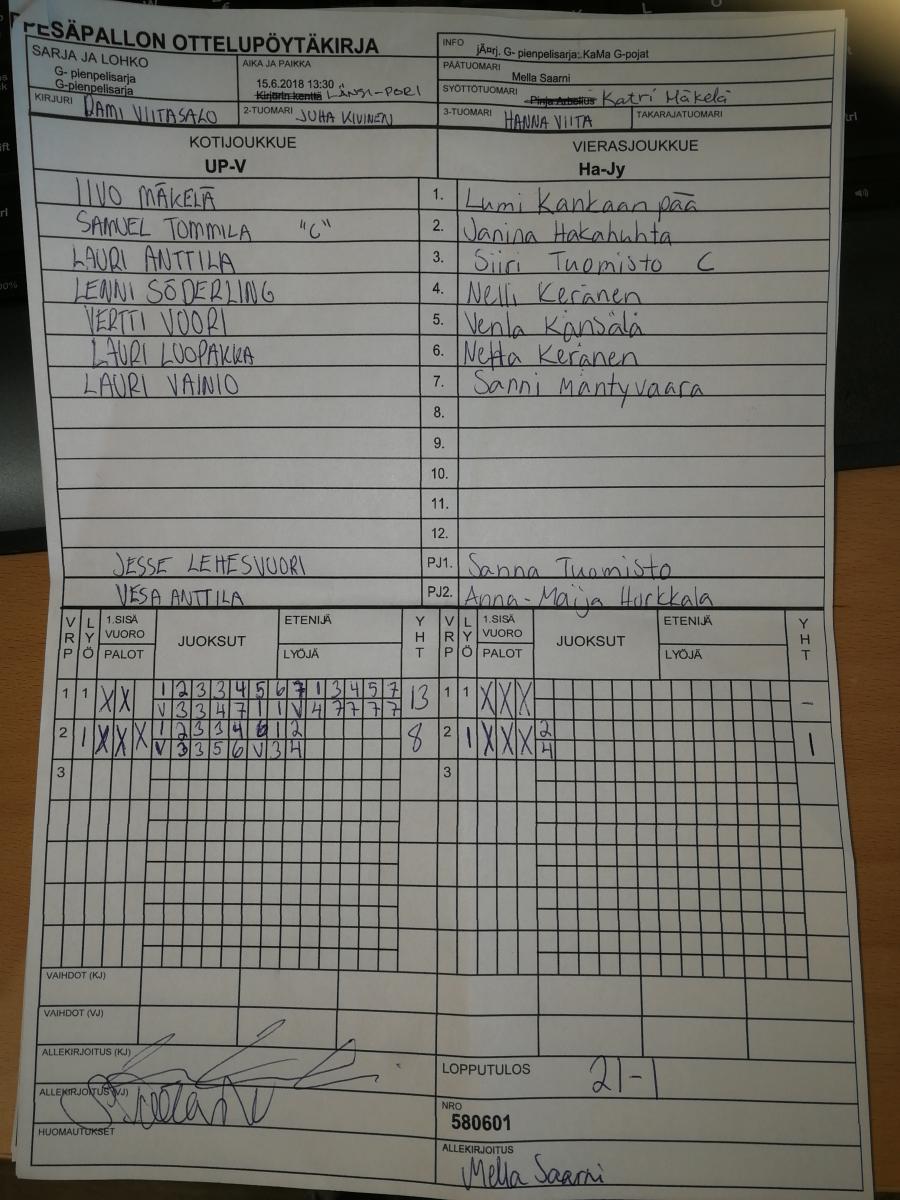 PESÄPALLON OTTELUPÖYTÄKIRJA
SARJA JA LOHKO
G- pienpelisarja
G-pienpelisarja
AIKA JA PAIKKA
15.6.2018 13:30
Kirjurin kenttä LÄNSI-PORI
INFO
jÃ¤rj. G- pienpelisarja:.KaMa G-pojat
PÄÄTUOMARI
Mella Saarni
SYÖTTÖTUOMARI Pinja Arbelius Katri Mäkelä
KIRJURI RAMI VIITASALO
2-TUOMARI JUHA KIVINEN
3-TUOMARI HANNA VIITA
TAKARAJATUOMARI
KOTIJOUKKUE VIERASJOUKKUE
UP-V Ha-Jy
IIVO MÄKELÄ 1. Lumi Kankaanpää
SAMUEL TOMMILA "C" 2. Janina Hakahuhta
LAURI ANTTILA 3. Siiri Tuomisto C
LENNI SÖDERLING 4. Nelli Keränen
VERTTI VUORI 5. Venla Känsälä
LAURI LUOPAKKA 6. Netta Keränen
LAURI VAINIO 7. Sanni Mäntyvaara
8.
9.
10.
11.
12.
JESSE LEHESVUORI PJ1. Sanna Tuomisto
VESA ANTTILA PJ2. Anna-Maija Hurkkala
VRP LYÖ 1.SISÄ VUORO PALOT JUOKSUT ETENIJÄ LYÖJÄ YHT VRP LYÖ 1.SISÄ VUORO PALOT JUOKSUT ETENIJÄ LYÖJÄ YHT
1 1 X X 1 2 3 3 4 5 6 7 1 3 4 5 7 13 1 1 X X X -
V 3 3 4 7 1 1 V 4 7 7 7 7
2 1 X X X 1 2 3 3 4 6 1 2 8 2 1 X X X 2 1
V 3 3 5 6 V 3 4 4
3 3
VAIHDOT (KJ)
VAIHDOT (VJ)
ALLEKIRJOITUS (KJ)
LOPPUTULOS 21-1
ALLEKIRJOITUS (VJ)
NRO
580601
HUOMAUTUKSET
ALLEKIRJOITUS
Mella Saarni